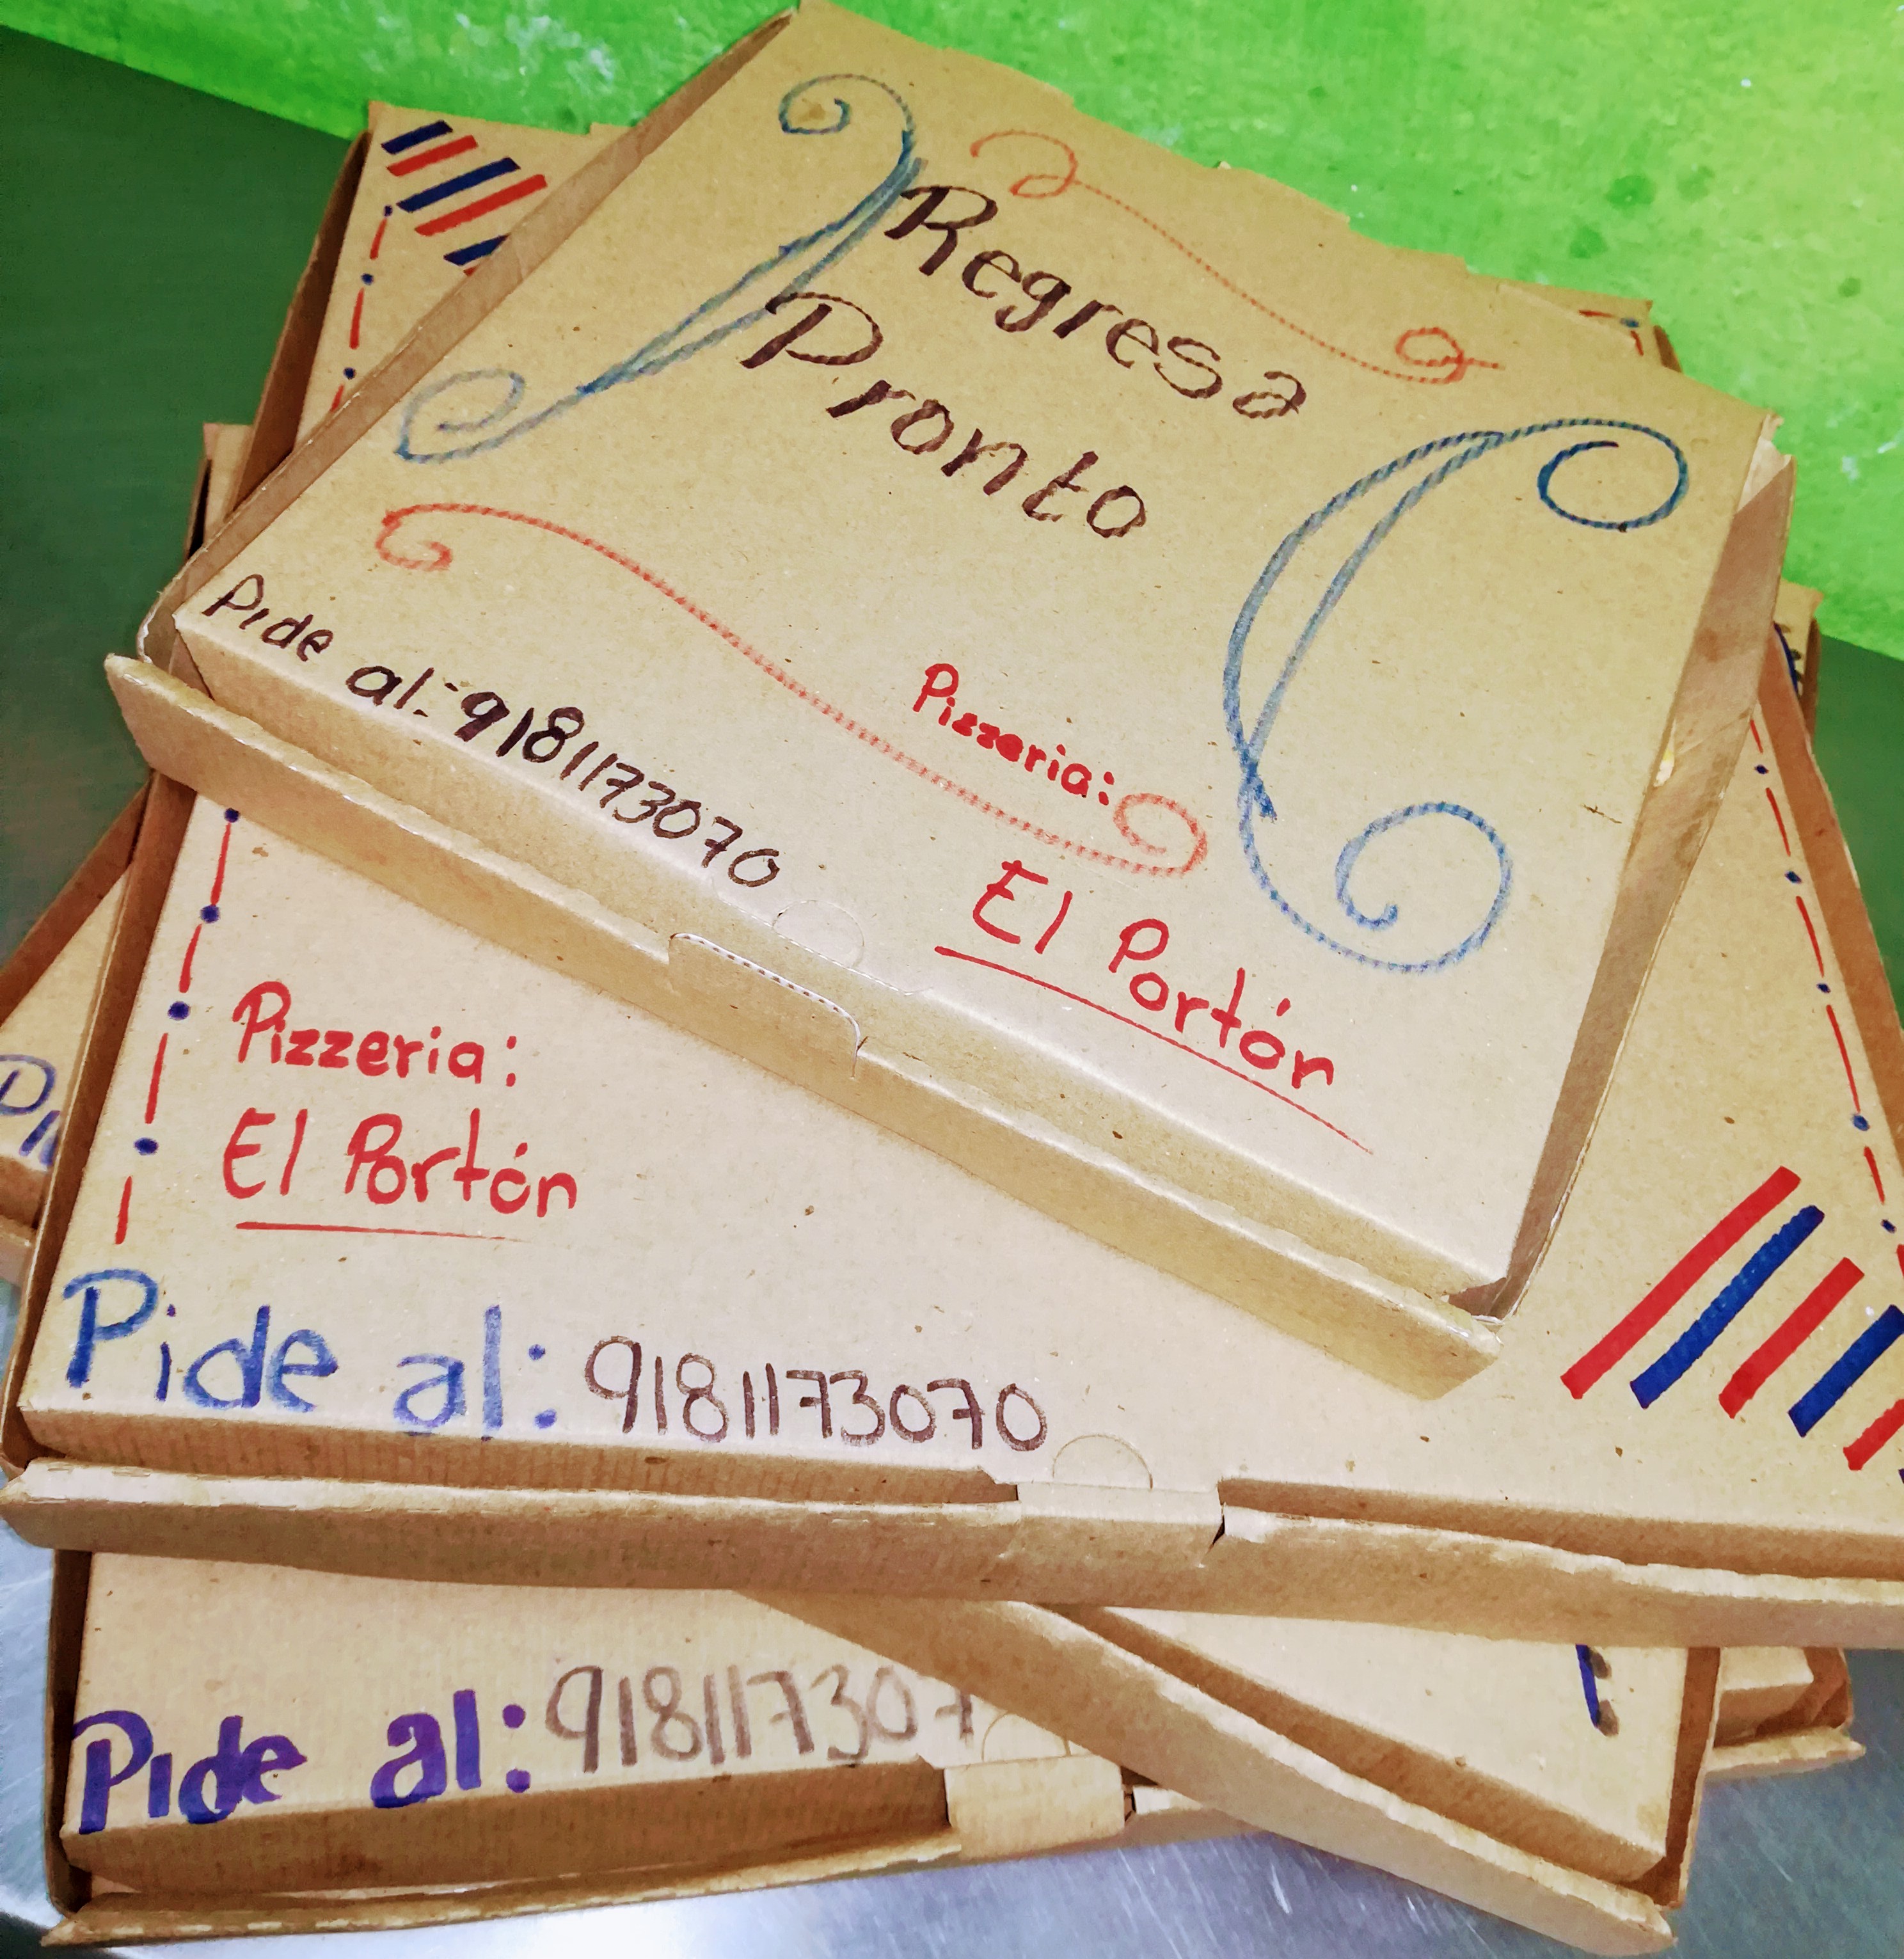 Regresa
Pronto
Pide al: 9181173070
Pizzeria:
El Portón
Pizzeria:
El Portón
Pide al: 9181173070
Pide al: 918117307